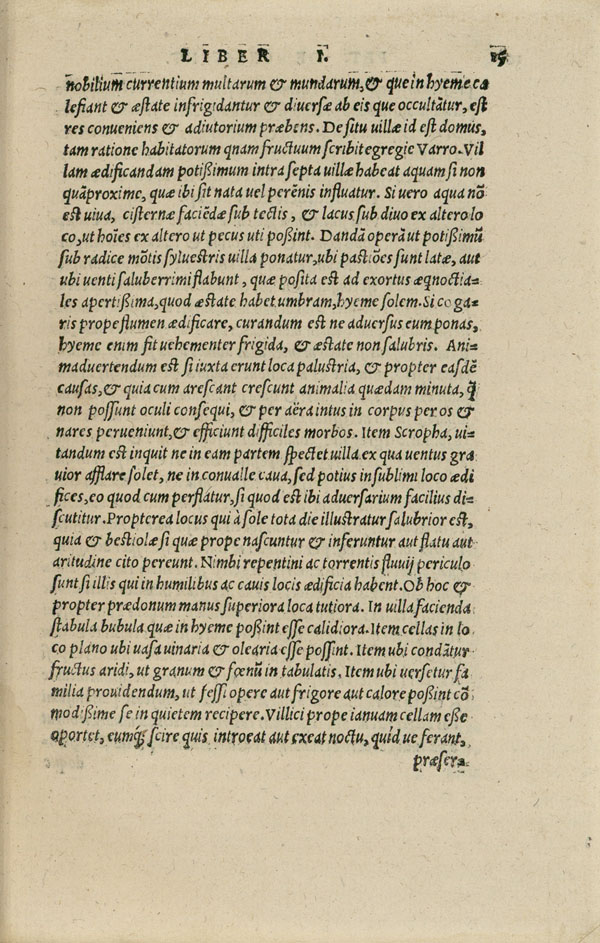 LIBER I. 15
nobilium currentium multarum & mundarum, & que in hyeme ca
lefiant & æstate infrigidantur & diuersæ ab eis que occultãtur, est
res conueniens & adiutorium præbens. De situ uillæ id est domus,
tam ratione habitatorum qnam fructuum scribit egregie Varro. Vil
lam ædificandam potißimum intra septa uillæ habeat aquam si non
quãproxime, quæ ibi sit nata uel perẽnis influatur. Si uero aqua nõ
est uiua, cisternæ faciẽdæ sub tectis, & lacus sub diuo ex altero lo
co, ut hoĩes ex altero ut pecus uti poßint. Dandã operã ut potißimũ
sub radice mõtis syluestris uilla ponatur, ubi pastiões sunt latæ, aut
ubi uenti saluberrimi flabunt, quæ posita est ad exortus æqnoctia=
les apertißima, quod æstate habet umbram, hyeme solem. Si coga=
ris prope flumen ædificare, curandum est ne aduersus eum ponas,
hyeme enim fit uehementer frigida, & æstate non salubris. Ani=
maduertendum est si iuxta erunt loca palustria, & propter easdẽ
causas, & quia cum arescant crescunt animalia quædam minuta, q̃
non possunt oculi consequi, & per aëra intus in corpus per os &
nares perueniunt, & efficiunt difficiles morbos. Item Scropha, ui=
tandum est inquit ne in eam partem spectet uilla ex qua uentus gra
uior afflare solet, ne in conualle caua, sed potius in sublimi loco ædi
fices, eo quod cum perflatur, si quod est ibi aduersarium facilius di=
scutitur. Propterea locus qui à sole tota die illustratur salubrior est,
quia & bestiolæ si quæ prope nascuntur & inferuntur aut flatu aut
aritudine cito pereunt. Nimbi repentini ac torrentis fluuij periculo
sunt si illis qui in humilibus ac cauis locis ædificia habent. Ob hoc &
propter prædonum manus superiora loca tutiora. In uilla facienda
stabula bubula quæ in hyeme poßint esse calidiora. Item cellas in lo
co plano ubi uasa uinaria & olearia esse possint. Item ubi condãtur
fructus aridi, ut granum & fœnũ in tabulatis. Item ubi uersetur fa
milia prouidendum, ut fessi opere aut frigore aut calore poßint cõ
modißime se in quietem recipere. Villici prope ianuam cellam eße
oportet, eumq; scire quis introeat aut exeat noctu, quid ue ferant,
præsera